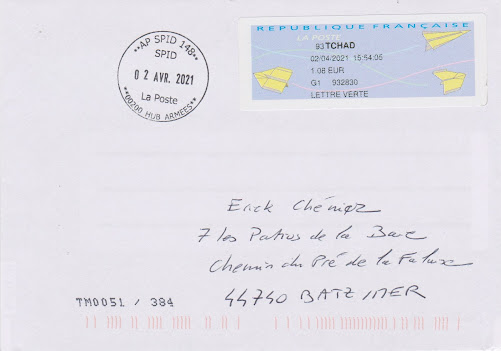 **AP SPID 148**
SPID
0 2 AVR. 2021
La Poste
**00200 HUB ARMEES**
REPUBLIQUE FRANÇAISE
LA POSTE
93 TCHAD
02/04/2021 15:54:05
1.08 EUR
G1 932830
LETTRE VERTE
Erick Chénier
7 les Patios de la Baie
Chemin du Pré de la Falaise
44740 BATZ/MER
TM0051 / 384